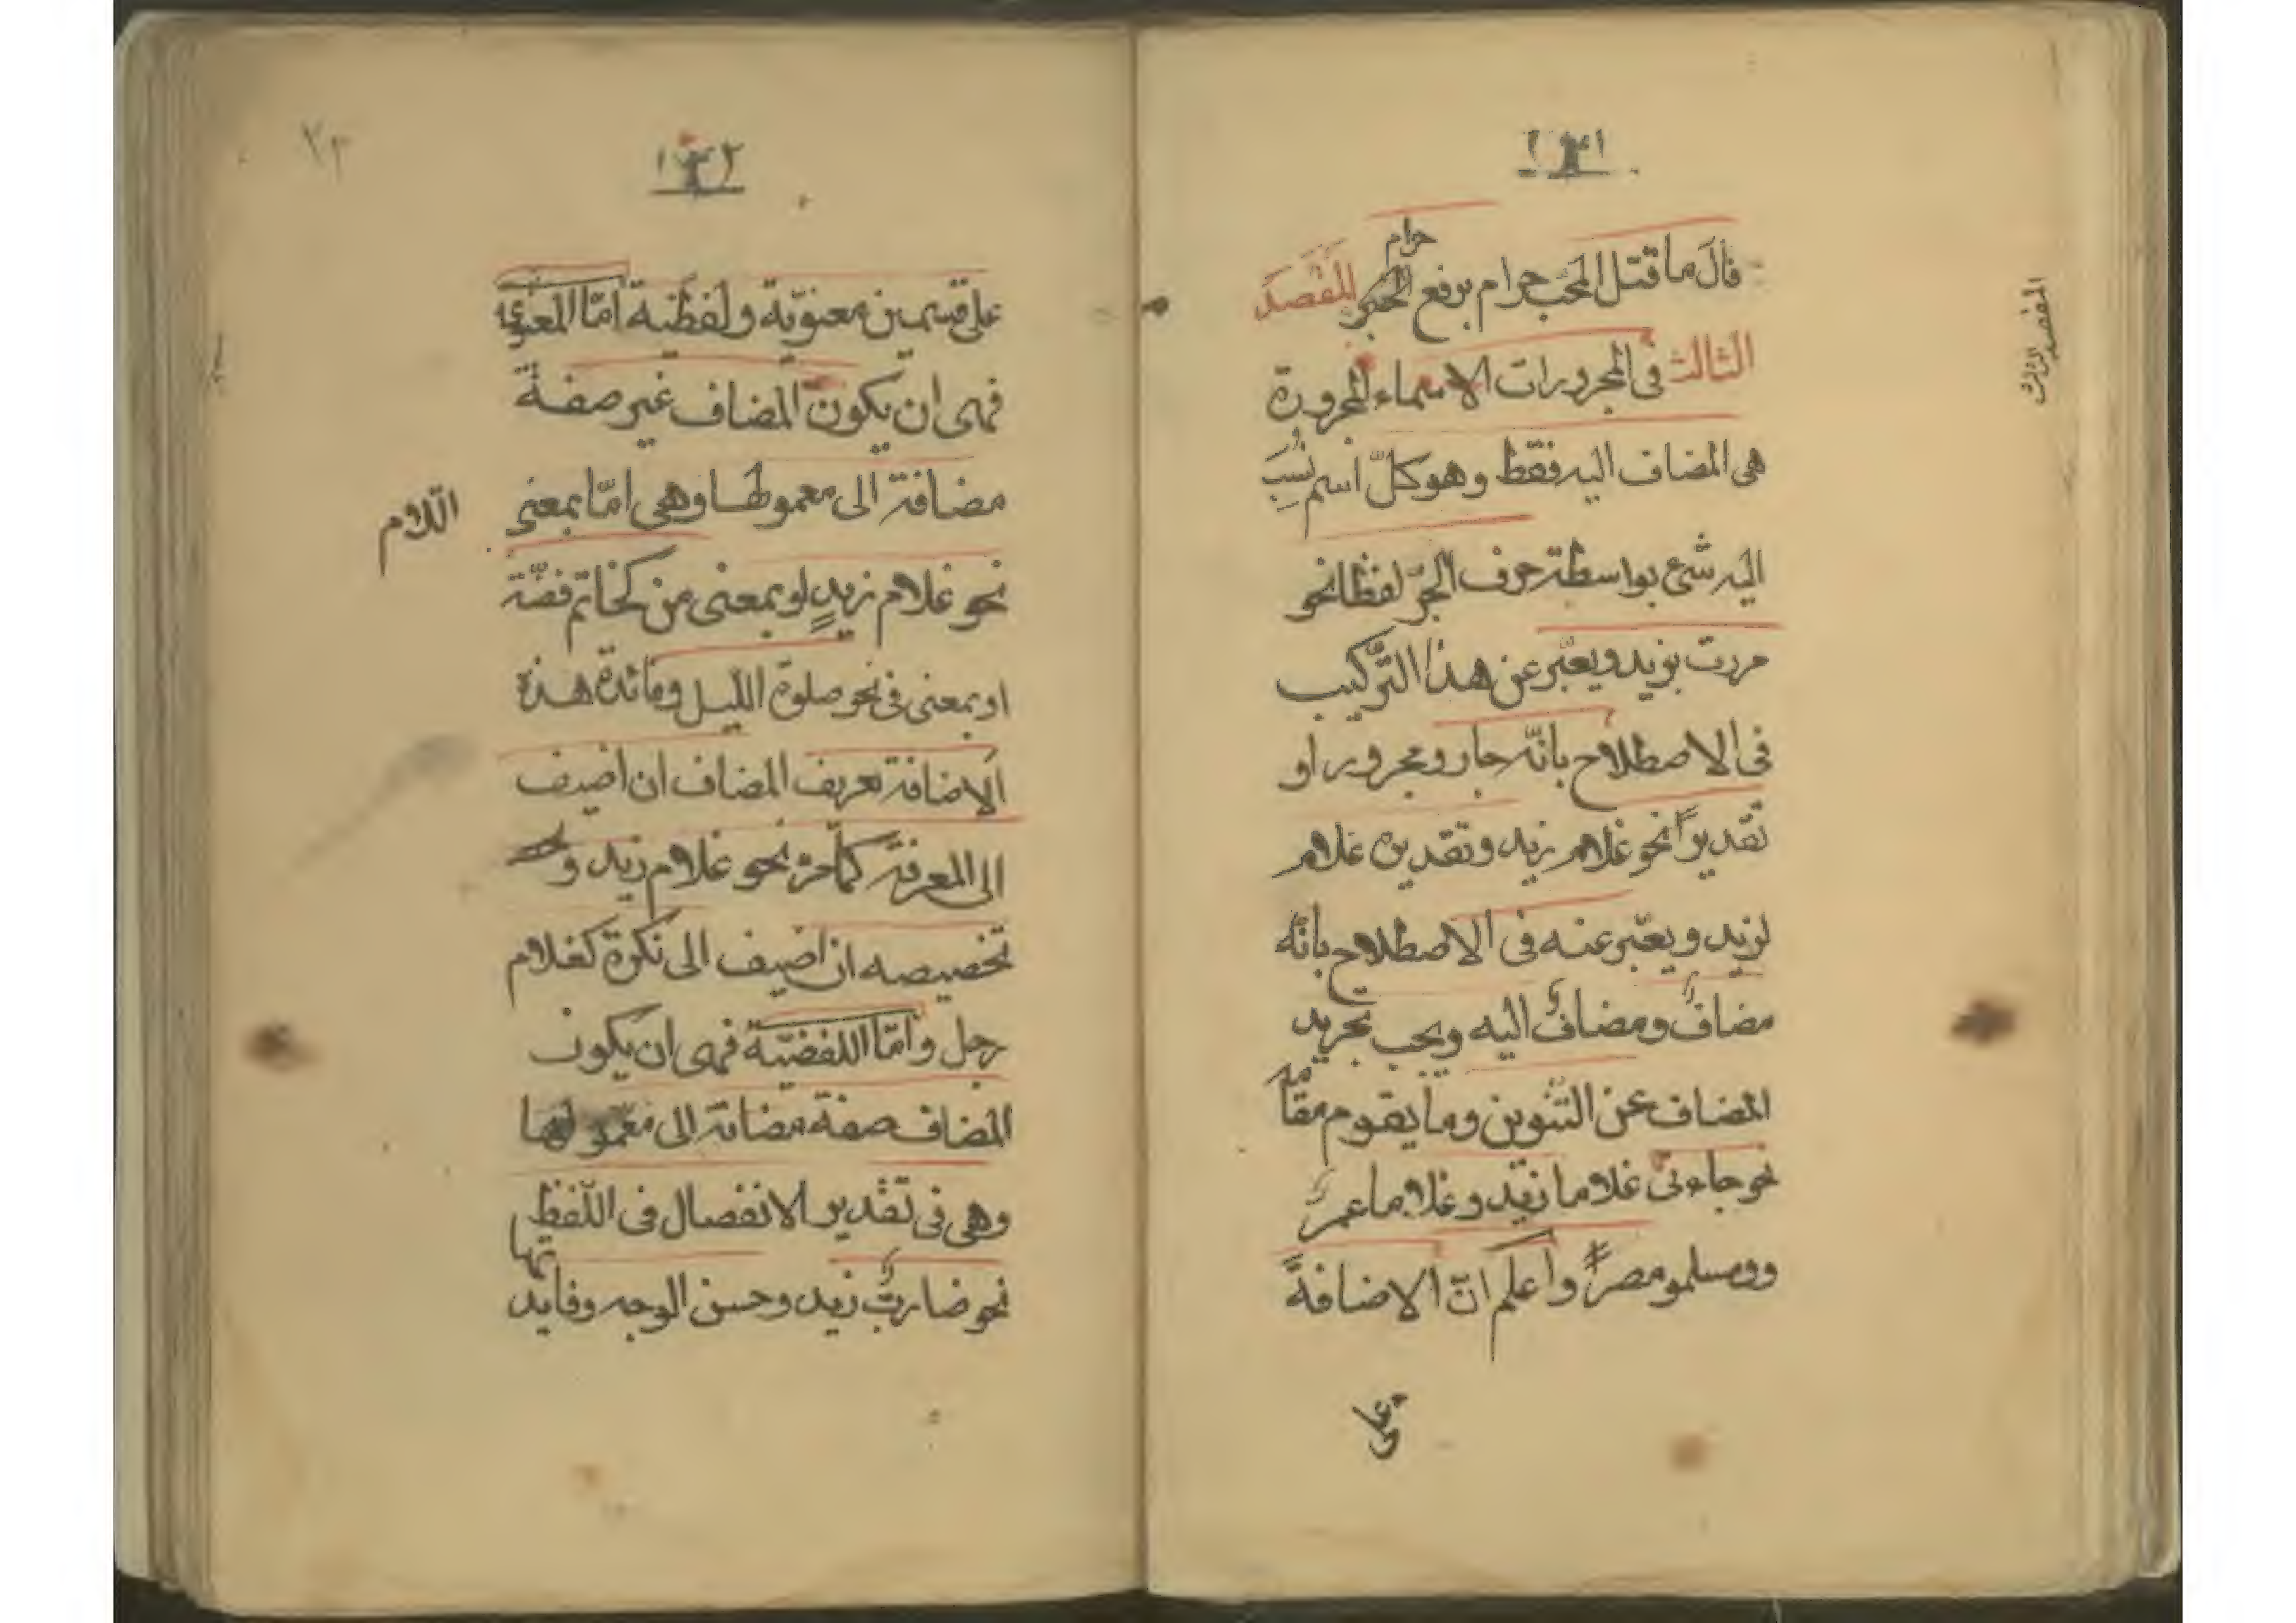 ١٣١
قال ما قتل المحب حرام برفع حرام المقصد
الثالث فى المجرورات الاسماء المجرورة
هى المضاف اليه فقط وهو كلّ اسم نُسِبَ
اليه شئ بواسطة حرف الجرّ لفظا نحو
مررت بزيد ويعبّر عن هذا التّركيب
فى الاصطلاح بانّه جار ومجرور او
تقديرًا نحو غلام زيد وتقديره غلام
لزيد ويعبّر عنه فى الاصطلاح بانّه
مضافٌ ومضافٌ اليه ويجب تجريد
المضاف عن التنوين وما يقوم مقامه
نحو جاءنى غلاما زيد وغلاما عمر
وومسلمو مصر واعلم انّ الاضافةً
على
المقصد الثالث
١٣٢
٧٣
على قسمين معنويّة ولفظية امّا المعنوية
فهى ان يكون المضاف غير صفة
مضافة الى معمولها وهى امّا بمعنى اللّام
نحو غلام زيدٍ او بمعنى من كخاتم فضّة
او بمعنى فى نحو صلوة اللّيل وفائدة هذه
الاضافة تعريف المضاف ان اضيف
الى المعرفة كما مرّ نحو غلام زيد و
تخصيصه ان اضيف الى نكرة كغلام
رجل وامّا اللفضيّة فهى ان يكون
المضاف صفة مضافة الى معمولها
وهى فى تقدير الانفصال فى اللّفظ
نحو ضارب زيد وحسن الوجه وفايدتها